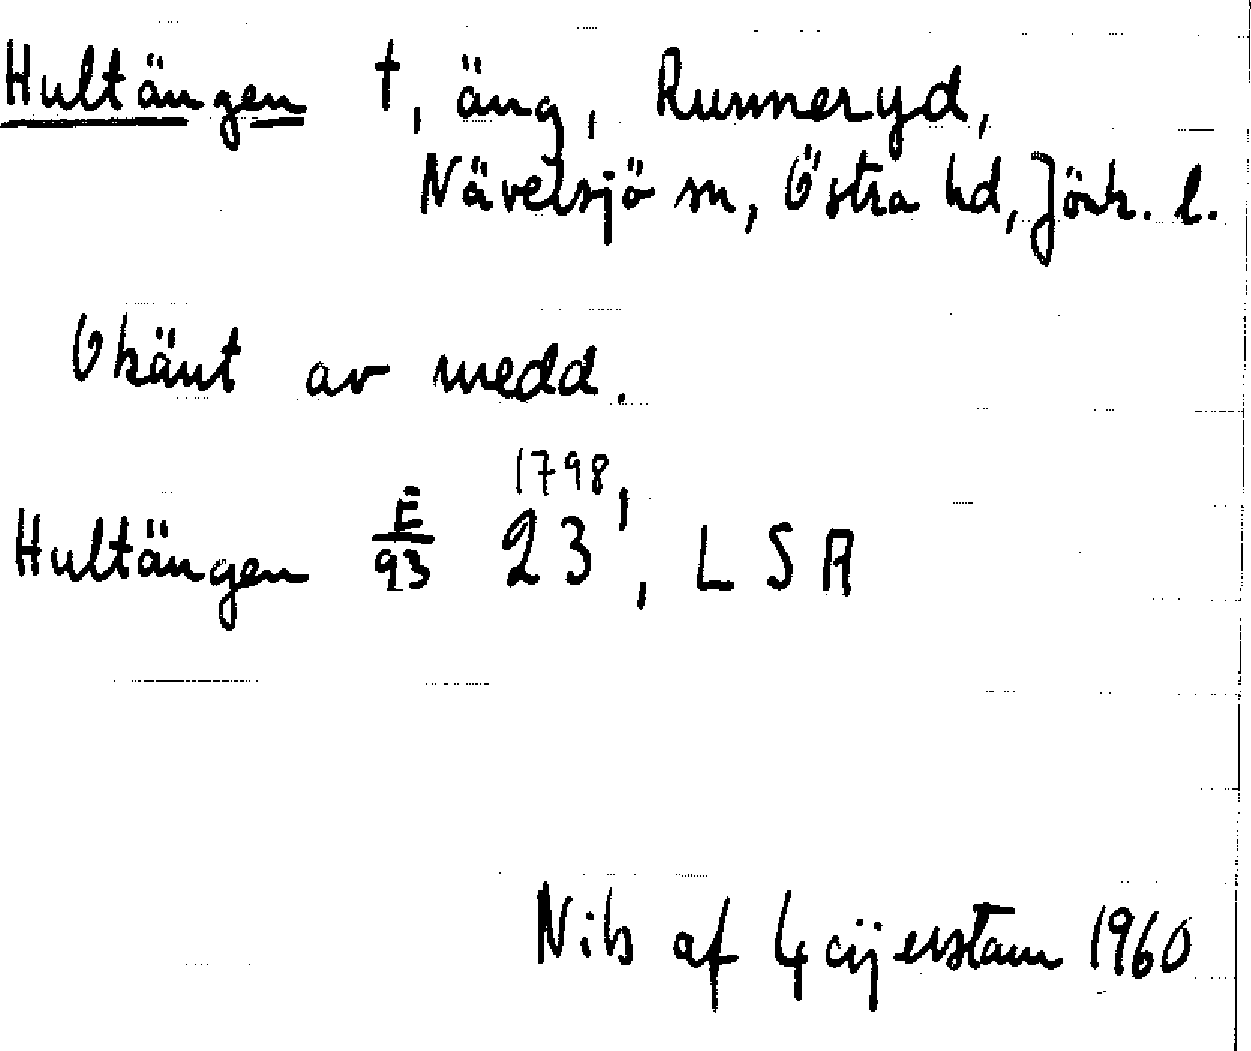 Hultängen †, äng, Runneryd,
Nävelsjö sn, Östra hd, Jönk. l.
Okänt av medd.
Hultängen E/93 23, 1798, LSA
Nils af Geijerstam 1960